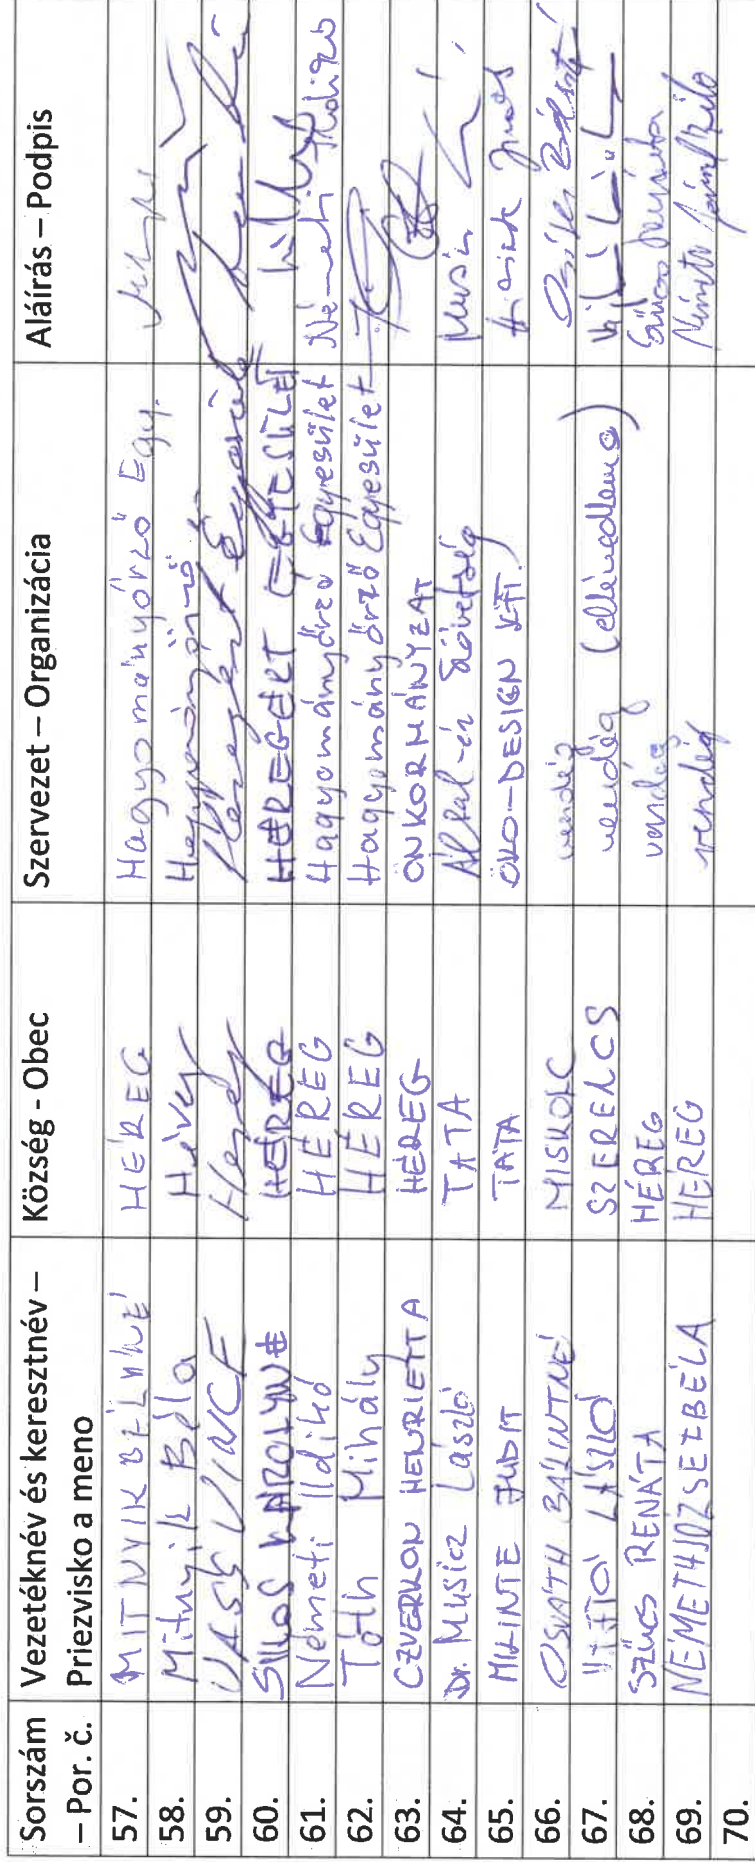 Sorszám Vezetéknév és keresztnév – Község - Obec Szervezet – Organizácia Aláírás – Podpis
– Por. č. Priezvisko a meno
57. MITNYIK BÉLÁNÉ HÉREG Hagyományőrző Egy.
58. Mitnyik Béla Héreg Hagyományőrző
59. VASS VINCE Héreg Héregért Egyesület
60. SILLOS KÁROLYNÉ HÉREG HÉREGÉRT EGYESÜLET
61. Németi Ildikó HÉREG Hagyományőrző Egyesület Németi Ildikó
62. Tóth Mihály HÉREG Hagyományőrző Egyesület
63. CZVERKON HENRIETTA HÉREG ÖNKORMÁNYZAT
64. Dr. Musicz László TATA Által-ér Szövetség
65. MILINTE JUDIT TATA ÖKO-DESIGN KFT.
66. OSVÁTH BÁLINTNÉ MISKOLC vendég Osváth Bálintné
67. LÁSZLÓ SZERENCS vendég
68. SZŰCS RENÁTA HÉREG vendég Szűcs Renáta
69. NÉMETH JÓZSEF BÉLA HÉREG vendég
70.